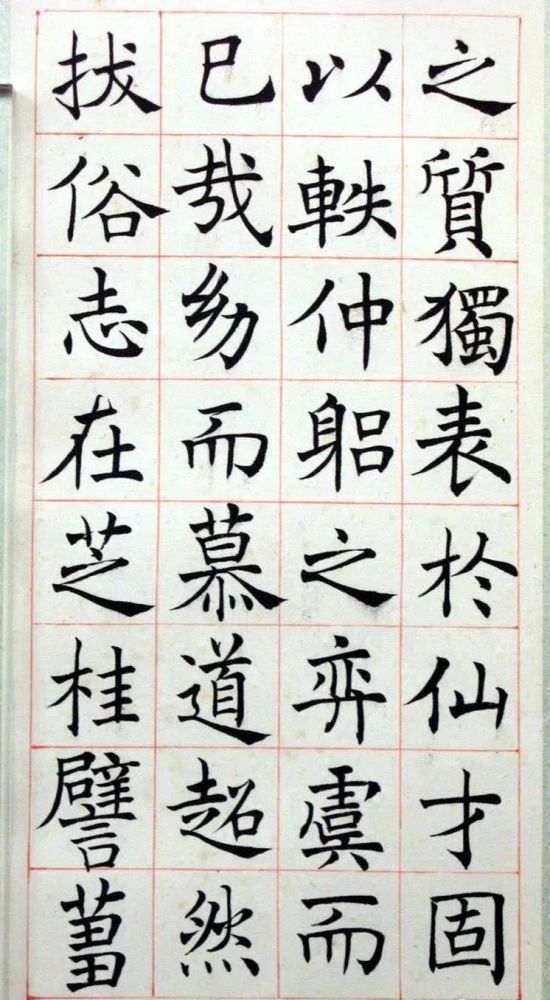 之質獨表於仙才固
以軼仲躳之弈虞而
巳哉幼而慕道超然
拔俗志在芝桂譬薑